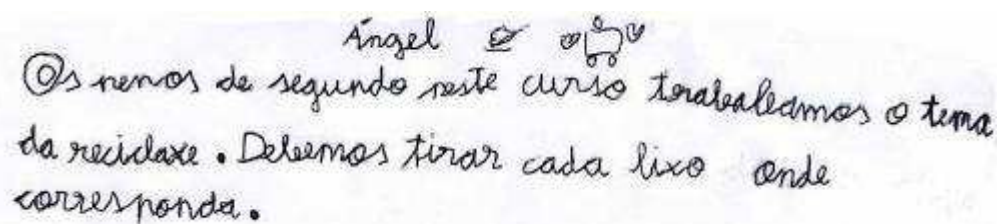 Ángel
Os nenos de segundo neste curso traballamos o tema
da reciclaxe. Debemos tirar cada lixo onde
corresponda.